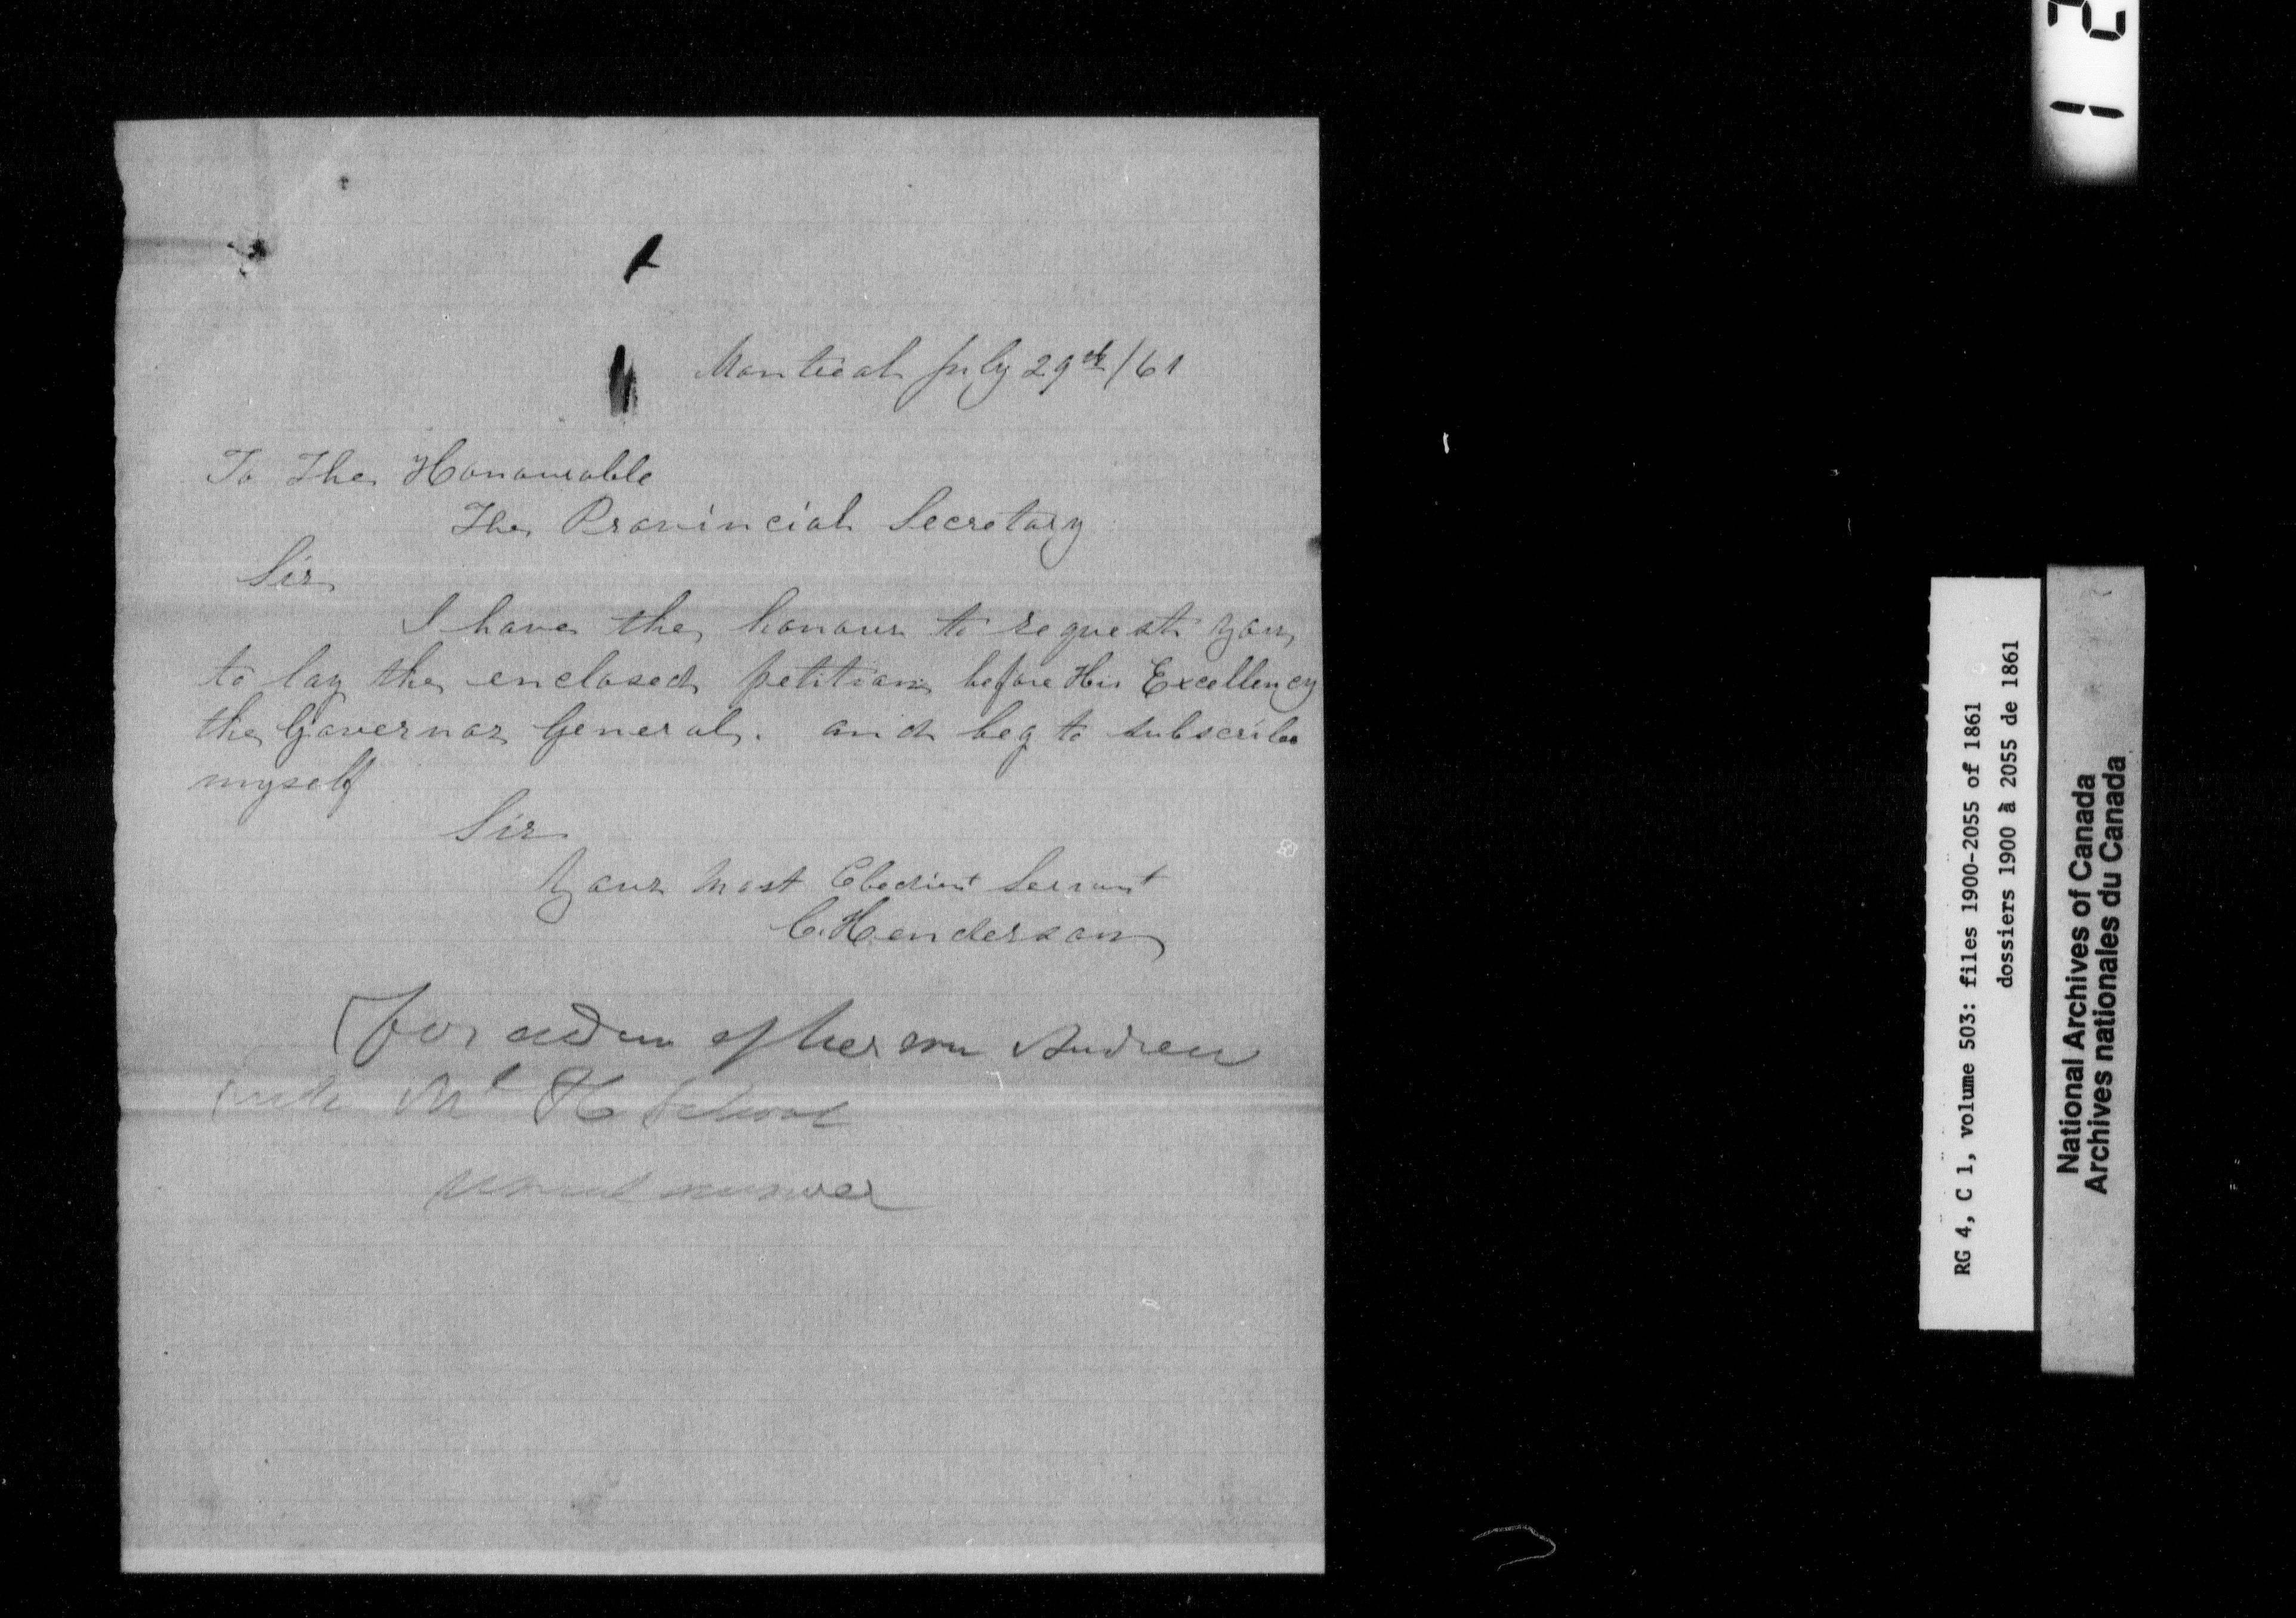 Montreal July 29th/61
To The Honourable
The Provincial Secretary
Sir
I have the honour to request you
to lay the enclosed petition before His Excellency
the Governor General. and beg to subscribe
myself
Sir
Your most Obedient Servant
C. Henderson
(for adm of her son Andrew
into School
usual answer
12
RG 4, C 1, volume 503: files 1900-2055 of 1861
dossiers 1900 à 2055 de 1861
National Archives of Canada
Archives nationales du Canada